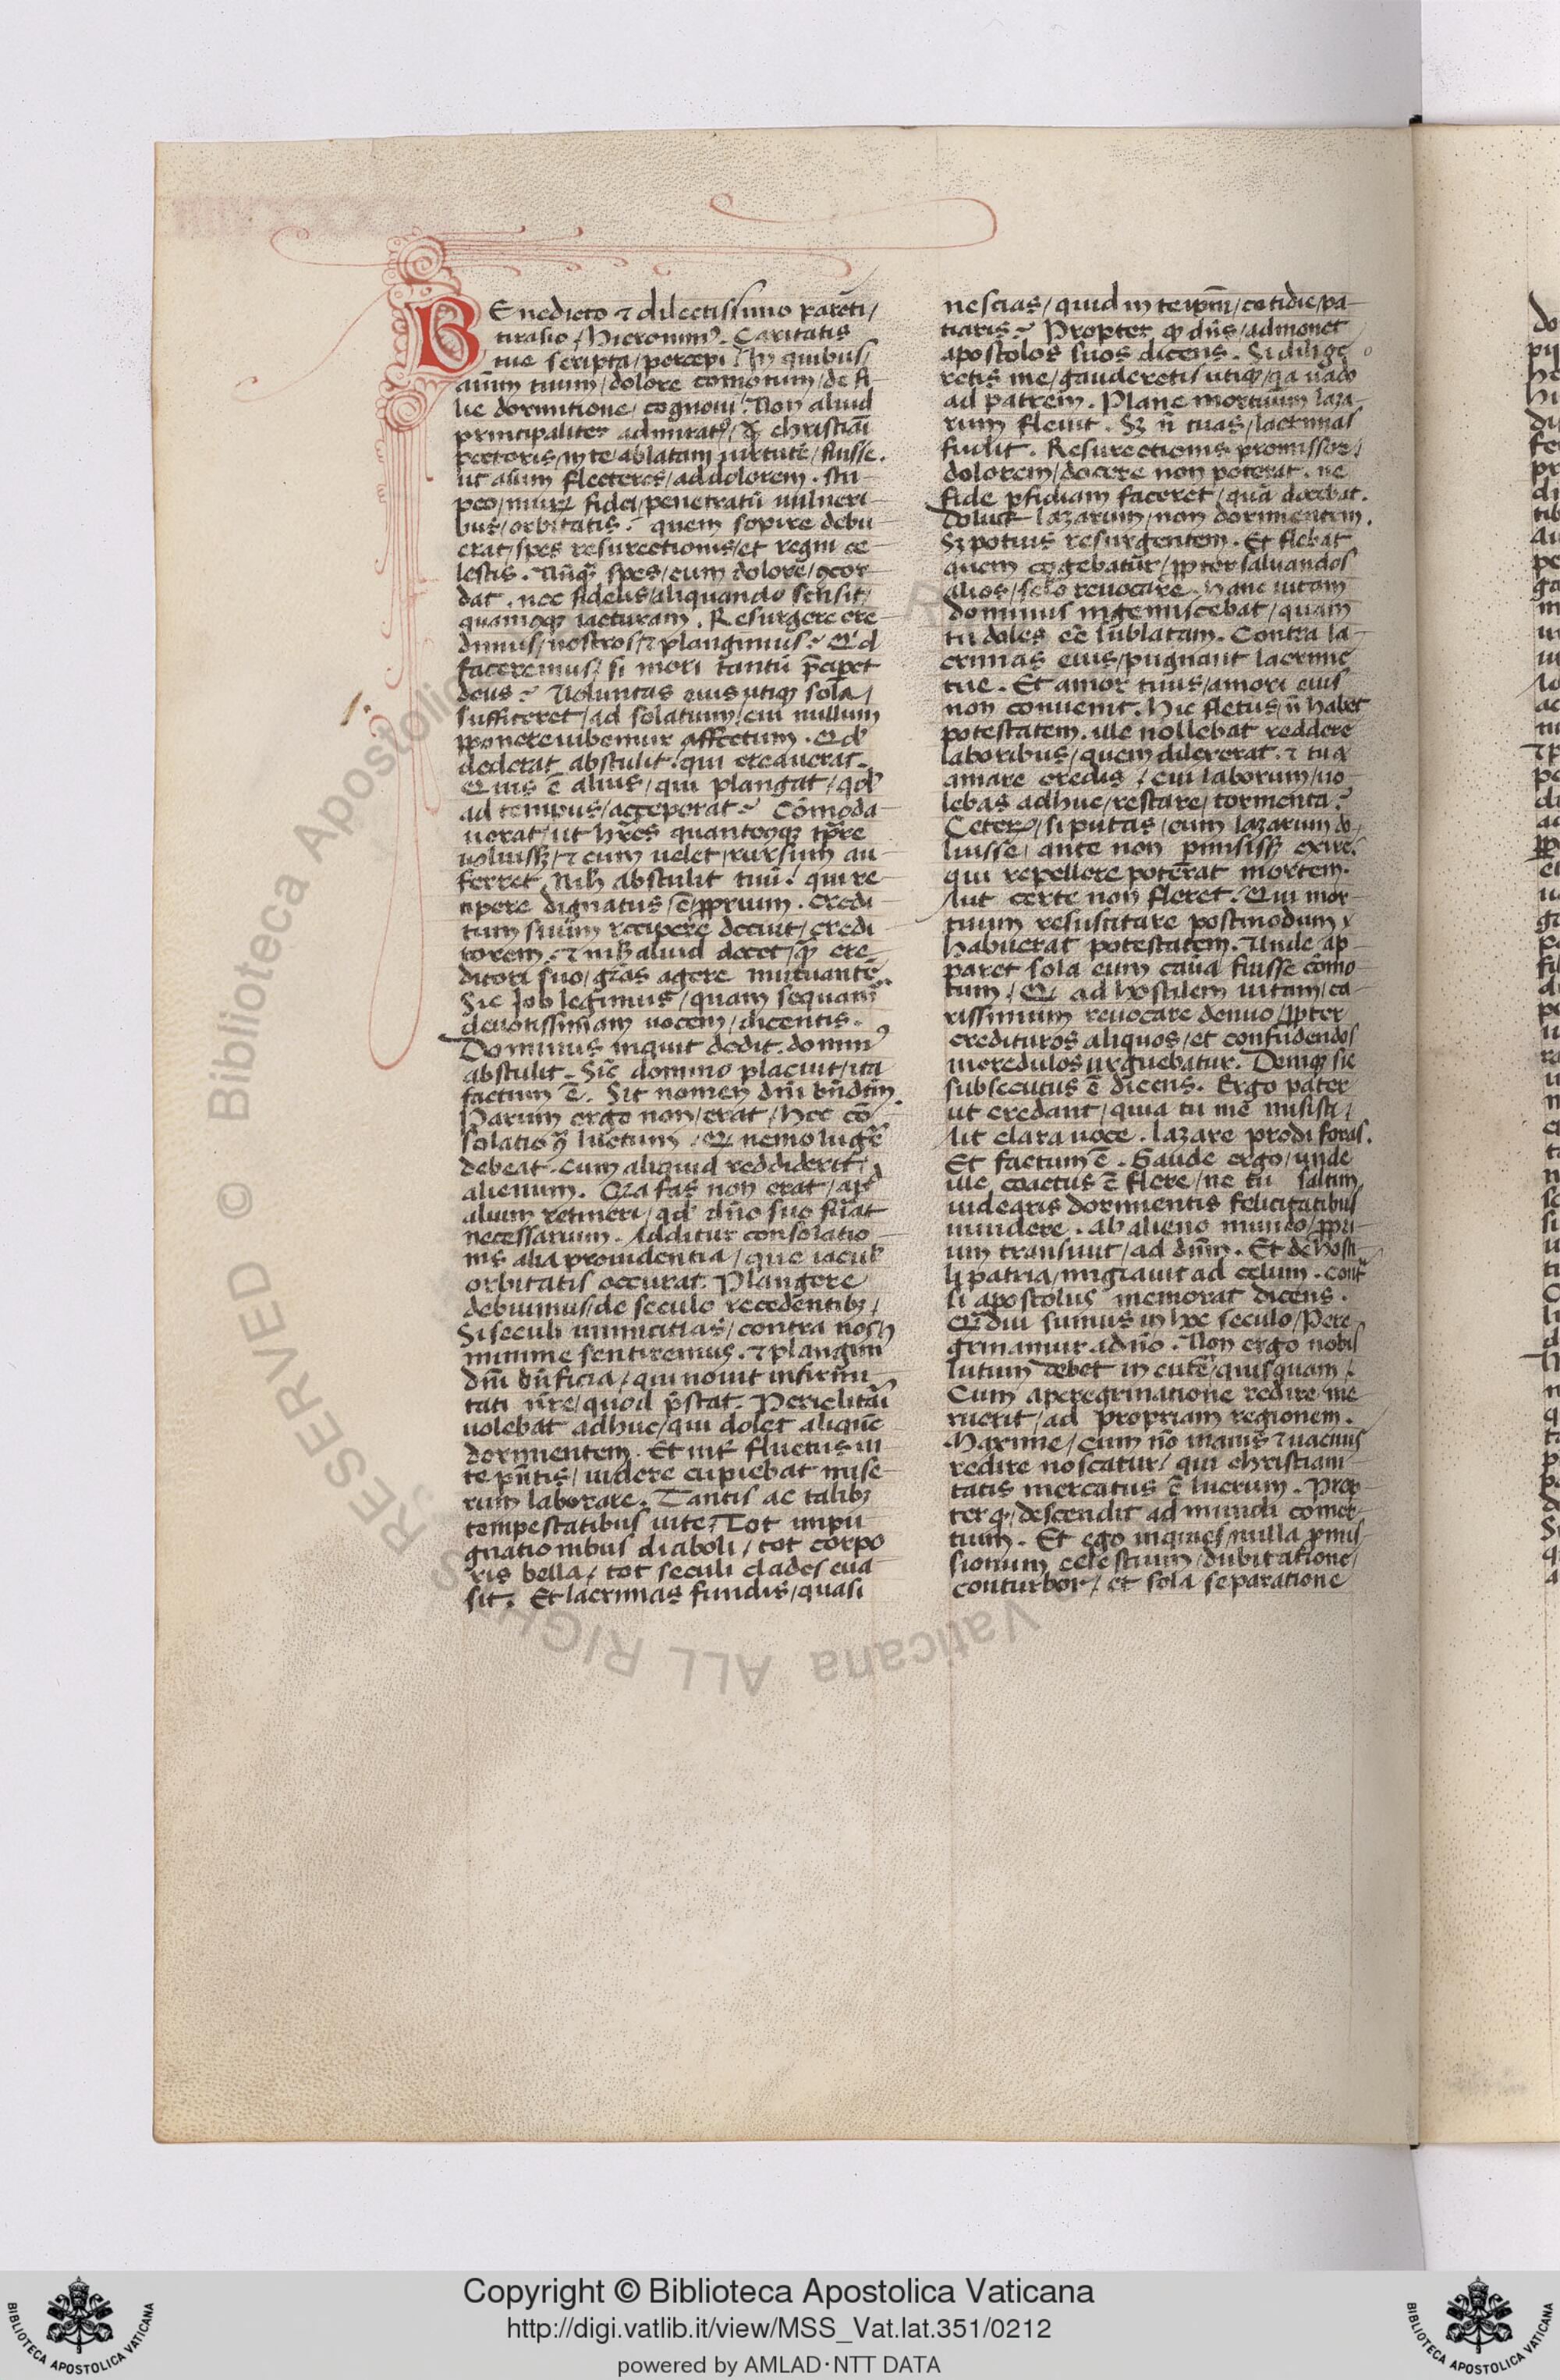 BEnedicto ⁊ dilectissimo parēti/
tirasio/Hieronimꝰ. Caritatis
tue scripta/percepi. In quibus/
aīum tuum/dolore comotum/de fi-
lie dormitione/cognoui. Non aliud
principaliter admiratꝰ/ christiāi
pectoris/in te/ablatam uirtutē/fuisse.
ut aīum flecteres/ad dolorem. Stu-
peo/ fidei/penetratū uulneri-
bus/orbitatis. quem sopire debu-
erat/spes resurectionis/et regni ce-
lestis. spes/cum dolore/ꝯcor-
dat. nec fidelis/aliquando sensit/
quamcqꝫ iacturam. Resurgere cre-
dimus/nostros/⁊ plangimus? Qd
faceremus/si mori tantū p̄ciperet
deus? Uoluntas eius utiqꝫ sola/
sufficeret/ad solatium/cui nullum
p̱ponere iubemur affectum. Qd
dederat abstulit/qui creauerat.
Quis ē alius/qui plangat/qd
ad tempus/acceperat? Cōmoda-
uerat/ut hr̄es quantocqꝫ tp̄re
uoluissꝫ/⁊ cum uelet/rursum au-
ferret. Nihꝫ abstulit tuū/qui re-
cipere dignatus ē/ꝓprium. Credi-
tum suum recipere decuit/credi-
torem. ⁊ nihꝫ aliud decet/ cre-
ditori suo/gr̄as agere mutuantē.
Sic Job legimus/quam sequam̄
deuotissimam uocem/dicentis.
Dominus inquit dedit. dominꝰ
abstulit. Sic domino placuit/ita
factum ē. Sit nomen dm̄i bn̄dtm̄.
Parum ergo non/erat/hec cō-
solatio luctum/ nemo lugē
debeat. cum aliquid reddiderit/
alienum. Qia fas non erat/ap̄
alium retineri/qd dn̄o suo fuāt
necessarium. Additur consolatio-
nis alia prouidentia/que iacul
orbitatis occurat. Plangere
debuimus/de seculo recedentibꝫ/
Si seculi inimicitias/contra nos/
minime sentiremus. ⁊ plangim̄
dm̄i bn̄ficia/qui nouit infirmi-
tati nr̄e/quod p̄stat. Periclitāi
uolebat adhuc/qui dolet aliquē
dormientem. Et int̄ fluctus ui-
te pn̄tis/uidere cupiebat mise-
rum laborare. Tantis ac talibꝫ
tempestatibus uite/Tot inpu-
gnationibus diaboli/tot corpo
ris bella/tot seculi clades eua
sit. Et lacrimas fundis/quasi
nescias/quid in te ip̄m/cotidie/pa-
tiaris? Propter qꝫ dn̄s/admonet
apostolos suos dicens. Si dilige
retis me/gauderetis utiqꝫ/qa uado
ad patrem. Plane mortuum laza-
rum fleuit. Sꝫ n̄ tuas/lacrimas
fudit. Resurectionis promissor/
dolorem/docere non poterat. ne
fide p̱fidiam faceret/quā docebat.
Doluit lazarum/non dormientem.
Sꝫ potius resurgentem. Et flebat
quem cogebatur/ꝓpter saluandos
alios/seclo reuocare. Hanc uitam
dominus ingemiscebat/quam
tu doles eē sublatam. Contra la-
crimas eius/pugnant lacrime
tue. Et amor tuus/amori eius
non conuenit. Hic fletus/n̄ habet
potestatem. ille nollebat reddere
laboribus/quem dilexerat. ⁊ tu q̄
amare credis/cui laborum/uo-
lebas adhuc/restare/tormenta?
Ceterꝫ/si putas/eum lazarum do-
luisse/ante non p̱misissꝫ exire.
qui repellere poterat mortem.
Aut certe non fleret. Qui mor-
tuum resuscitare postmodum
habuerat potestatem. Unde ap-
paret sola eum causa fuisse cōmo-
tum. Qꝫ ad hostilem uitam/ca-
rissimum reuocare denuo/ꝓpter
credituros aliquos/et confudendos
incredulos urguebatur. Deniqꝫ sic
subsecutus ē dicens. Ergo pater
ut credant/quia tu me misisti/
Ait clara uoce. lazare prodi foras.
Et factum ē. Gaude ergo/unde
ille coactus ē flere/ne tu saltim
uidearis dormientis felicitatibus
inuidere. ab alieno mundo/ꝓpri-
um transiuit/ad dn̄m. Et de hosti-
li patria/migrauit ad celum.
li apostolus memorat dicens.
Qm̄diu sumus in hoc seculo/Pere-
grinamur a dn̄o. Non ergo nobis
lutum debet in cute/quisquam/
Cum a peregrinatione redire/me
ruerit/ad propriam regionem.
Maxime/cum nō inanis ⁊ uacuus
redire noscatur/qui christiani-
tatis mercatus ē lucrum. Prop
ter qꝫ/descendit ad mundi comer-
tium. Et ego inquies/nulla p̱mis-
sionum celestium/dubitatione/
conturbor/et sola separatione
1.
© Biblioteca Apostolica Vaticana ALL RIGHTS RESERVED
Copyright © Biblioteca Apostolica Vaticana
http://digi.vatlib.it/view/MSS_Vat.lat.351/0212
powered by AMLAD·NTT DATA
BIBLIOTECA APOSTOLICA VATICANA
BIBLIOTECA APOSTOLICA VATICANA